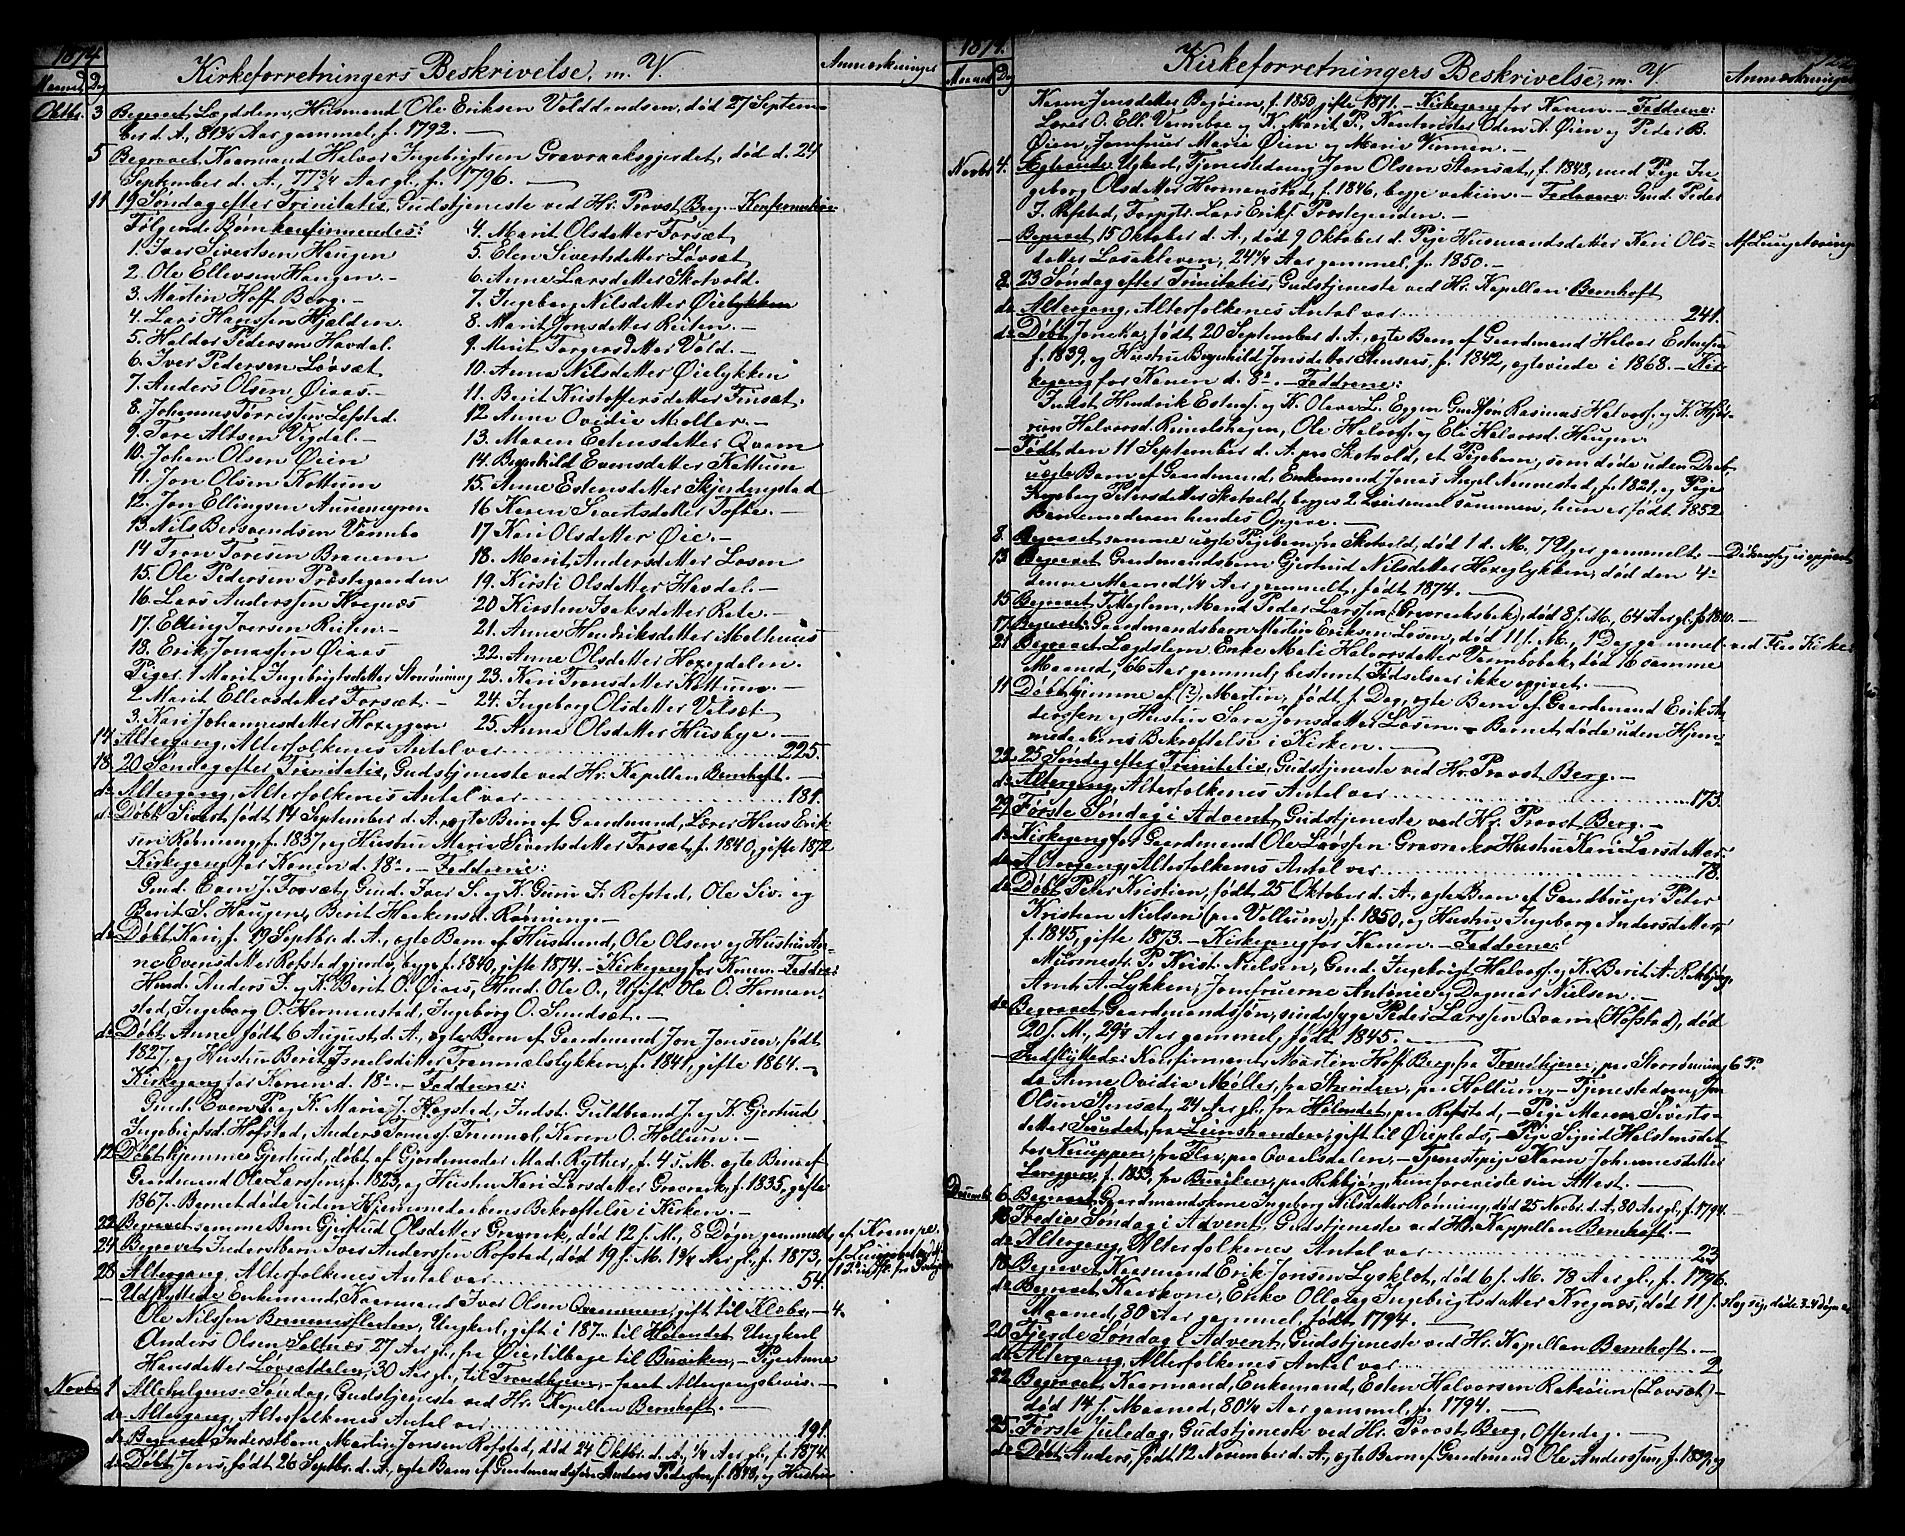 1874
Kirkeforretningers Beskrivelse, m. V.
Anmærkninger
Maaned Dag
Oktbr. 3 Begravet Lægdslem, Husmand Ole Eriksen Volddandsen, død 27 Septem-
ber d. A., 81¾ Aar gammel, f. 1792. —
5 Begravet Kaarmand Halvor Ingebrigtsen Gravraaksgjerdet, død d. 24
September d. A., 77¾ Aar gl., f. 1796. —
11 19 Søndag efter Trinitatis, Gudstjeneste ved Hr. Provst Berg. — Konfirmation.
Følgende Børn konfirmeredes:
1. Iver Sivertsen Haugen
2. Ole Ellevsen Haugen. —
3. Martin Hoff Berg. —
4. Lars Hanssen Hjalden.
5. Haldor Pedersen Havdal.
6. Iver Pedersen Løvsæt
7. Anders Olsen Øiaas. —
8. Johannes Torrissen Lefstad.
9. Tore Altsen Vigdal. —
10. Johan Olsen Øien
11. Jon Olsen Kottum
12. Jon Ellingsen Aunemyren
13. Nils Bersvendsen Vammbo
14 Tron Toresen Braaem
15. Ole Pedersen Præstegaarden
16. Lars Anderssen Kregnæs
17. Elling Iversen Reiten. —
18. Erik Jonassen Øiaas
Piger. 1 Marit Ingebrigtsdatter Storrønning
2 Marit Ellevsdatter Forsæt. —
3. Kari Johannesdatter Hoxeggen
4. Marit Olsdatter Forsæt
5. Elen Sivertsdatter Løvsæt
6. Anne Larsdatter Skotvold.
7. Ingeborg Nilsdatter Øielykken
8. Marit Jonsdatter Reiten. —
9. Marit Torgersdatter Vold. —
10. Anna Nilsdatter Øielykken
11. Berit Kristoffersdatter Finsæt.
12 Anne Ovidie Møller. —
13. Maren Estensdatter Qvam
14. Brynhild Evensdatter Kottum
15. Anne Estensdatter Skjerdingstad
16 Karen Sivertsdatter Tofte. —
17 Kari Olsdatter Øie. —
18. Marit Andersdatter Losen
19. Kirsti Olsdatter Havdal. —
20 Kirsten Isaksdatter Rate. —
21. Anne Hendriksdatter Melhuus
22. Anne Olsdatter Hoxegdalen.
23. Kari Tronsdatter Kottum. —
24. Ingeborg Olsdatter Velsæt
25. Anna Olsdatter Husbye. —
14 Altergang, Alterfolkenes Antal var 225.
18. 20 Søndag efter Trinitatis, Gudstjeneste ved Hr. Kapellan Bernhoft. —
do Altergang, Alterfolkenes Antal var 181.
do Døbt Sivert, født 14 September d. A., ægte Barn af Gaardmand, Lærer Hans Erik-
sen Rønning, f. 1837, og Hustru Marie Sivertsdatter Forsæt, f. 1840, gifte 1872
Kirkegang for Konen d. 18. — Fadderne:
Gmd. Even J. Forsæt, Gmd. Iver S. og K. Guru I. Rofstad, Ole Siv. og
Berit S. Haugen, Berit Haakensd. Rønning. —
do Døbt Kari, f. 19 Septbr. d. A., ægte Barn af Husmand, Ole Olsen og Hustru An-
ne Evensdatter Rofstadgjerdet, begge f. 1840, gifte 1874. — Kirkegang for Konen. — Fadderne:
Husd. Anders I. og K. Berit O. Øiaas, Husd. Ole O., Ugift Ole O. Herman-
stad, Ingeborg O. Hermanstad, Ingeborg O. Sundsæt. —
do Døbt Anne, født 6 August d. A., ægte Barn af Gaardmand Jon Jonsen, født
1827, og Hustru Berit Ismelsdatter Tranmælslykken, f. 1841, gifte 1864. —
Kirkegang for Konen d. 18. — Fadderne:
Gmd. Even P. og K. Maria J. Hogstad, Inderst. Guldbrand J. og K. Gjertrud
Ingebrigtsd. Hofstad, Anders Tomess. Tranmæl, Karen O. Hollum. —
12 Døbt hjemme Gjertrud, døbt af Gjordemoder Mad. Ryther, f. 4 s. M. ægte Barn af
Gaardmand Ole Larssen, f. 1823, og Hustru Kari Larsdatter Gravraak, f. 1835, gifte
1867. Barnet døde uden Hjemmedaabens Bekræftelse i Kirken. —
22 Begravet samme Barn Gjertrud Olsdatter Gravraak, død 12 f. M., 8 Døgn gammelt, af Krampe.
24 Begravet Inderstbarn Iver Anderssen Rofstad, død 19 f. M. 1¾ Aar gl., f. 1873,
25 Altergang, Alterfolkenes Antal var 54.
— Udflyttede Enkemand, Kaarmand Iver Olsen Qvammen, gift til Klæbo, — 4.
Ole Nilssen Brommesfladen, Ungkarl, gift i 187... til Hølandet Ungkarl
Anders Olsen Saltnæs, 27 Aar gl., fra Øie, tilbage til Buviken, — Pige Anne
Hansdatter Lovsætdalen, 30 Aar gl., til Trondhjem, — faaet Altergangsbevis. —
Novbr. 1 Allehelgens Søndag, Gudstjeneste ved Hr. Kapellan Bernhoft. —
do Altergang, Alterfolkenes Antal var 191.
do Begravet Inderstbarn Martin Jonsen Rofstad, død 24 Oktbr. d. A., ¼ Aar gl., f. 1874.
do Døbt Jens, født 26 Septbr. d. A., ægte Barn af Gaardmandssøn Anders Pedersen, f. 1848, og Hustru
1874.
Kirkeforretningers Beskrivelse, m. V.
Anmærkninger
Maaned Dag
Karen Jonsdatter Bogøien, f. 1850, gifte 1871. — Kirkegang for Konen. — Fadderne:
Lærer O. Ell. Vammbo og K. Marit P., Kantinister Oden A. Øien og Peder B.
Øien, Jomfruer Marie Øien og Marie Vinnen. —
Novbr. 4. Egteviede Ugkarl, Tjenestedreng Jon Olsen Stensæt, f. 1848, med Pige In-
geborg Olsdatter Hermanstad, f. 1846, begge vakcin. — Forlovere: Gmd. Peder
I. Rofstad, Forpgtr. Lars Eriks. Prestegaarden. —
— Begravet 15 Oktober d. A., død 9 Oktober d. Pige Husmandsdatter Kari Ols-
datter Losakleven, 24¼ Aar gammel, f. 1850. —
8. 23 Søndag efter Trinitatis, Gudstjeneste ved Hr. Kapellan Bernhoft
do Altergang, Alterfolkenes Antal var 241.
do Døbt Joneka, født 20 September d. A., ægte Barn af Gaardmand Halvor Estensen
f. 1839, og Hustru Brynhild Jonsdatter Stensaas, f. 1842, egteviede i 1868. — Kir-
kegang for Konen d. 8. — Fadderne:
Inderst Hendrik Estens. og K. Olava L. Eggen Gmdsøn Rasmus Halvors. og K. Ma-
ren Halvorsd. Rimolshagen, Ole Halvors. og Eli Halvorsd. Haugen.
— Født den 11 September d. A. paa Skotvold, et Pigebarn, som døde uden Daab,
uægte Barn af Gaardmand, Enkemand Jonas Angel Nennestad, f. 1821, og Pige
Ingeborg Petersdatter Skotvold, begges 2. Leiermaal sammen, hun er født 1852
Barnemoderen hendes Opgave. —
8. Begravet samme uægte Pigebarn fra Skotvold, død 1 d. M., 7 Uger gammelt. —
13 Begravet Gaardmandsbarn Gjertrud Nilsdatter Hoxeglykken, død den 4
denne Maaned ¼ Aar gammelt, født 1874. —
15 Begravet Fattiglem, Mand Peder Larssen (Gravraaksbek), død 8 f. M., 64 Aar gl. f. 1810. —
17 Begravet Gaardmandsbarn Martin Eriksen Losen, død 11 f. M., 1 Dag gammel ved Flaa Kirke.
21 Begravet Lægdslem, Enke Mali Halvorsdatter Vammbobek, død 16 samme
Maaned, 66 Aar gammel; bestemt Fødselsaar ikke opgivet. —
11 Døbt hjemme af (?), Martin, født f. Dag, ægte Barn af Gaardmand Erik An-
derssen og Hustru Sara Jonsdatter Losen. — Barnet døde uden Hjem-
medaabens Bekræftelse i Kirken. —
22. 25 Søndag efter Trinitatis, Gudstjeneste ved Hr. Provst Berg. —
do Altergang, Alterfolkenes Antal var 173.
29 Første Søndag i Advent, Gudstjeneste ved Hr. Provst Berg. —
do Kirkegang for Gaardmand Ole Larssen Gravraaks Hustru Kari Larsdatter.
do Altergang, Alterfolkenes Antal var 78.
do Døbt Peter Kristian, født 25 Oktober d. A., ægte Barn af Gaardbruger Peter
Kristian Nielsen (paa Vollum), f. 1850, og Hustru Ingeborg Andersdatter,
f. 1845, gifte 1873. — Kirkegang for Konen. — Fadderne:
Murmestr. P. Krist. Nielsen, Gmd. Ingebrigt Halvors. og K. Berit A. Rekbjørg,
Arnt A. Lykken, Jomfruerne Antonie og Dagmar Nielsen. —
do Begravet Gaardmandssøn, sindssyge Peder Larssen Qvam (Hofstad), død
20 f. M., 29¼ Aar gammel, født 1845. —
— Indflyttede: Konfirmant Martin Hoff Berg, fra Trondhjem, paa Storrønning
do Anne Ovidia Møller, fra Strinden, paa Hollum, — Tjenestedreng Jon
Olsen Stensæt, 24 Aar gl., fra Hølandet, paa Rofstad, — Pige Maren Siverts-
datter Sundet, fra Leinstranden, gift til Øieplads, — Pige Sigrid Halstensdat
ter Knuppen, fra Flaa, paa Qvaalsdalen, — Tjenestepige Karen Johannesdatter
Lereggen, f. 1853, fra Buviken, paa Rekbjørg, hun foreviste sin Attest. —
Decembr. 6 Begravet Gaardmandskone Ingeborg Nilsdatter Rønning, død 25 Novbr. d. A. 80 Aar gl., f. 1794. —
Tredie Søndag i Advent, Gudstjeneste ved Hr. Kappellan Bernhoft. —
do Altergang, Alterfolkenes Antal var 23
18 Begravet Kaarmand Erik Jonsen Lysklet, død 6 f. M. 78 Aar gl., f. 1796.
do Begravet Kaarkone, Enke Ollaug Ingebrigtsdatter Kregnæs, død 11 f.
Maaned, 80 Aar gammel, født 1794. —
20 Fjerde Søndag i Advent, Gudstjeneste ved Hr. Kapellan Bernhoft. —
do Altergang, Alterfolkenes Antal var 2
22 Begravet Kaarmand, Enkemand, Esten Halvorsen Ratsøien (Lovsæt)—
død 14 f. Maaned, 80¼ Aar gammel, f. 1794. —
25. Første Juledag, Gudstjeneste ved Hr. Provst Berg, Offerdag. —
do Døbt Anders, født 12 November d. A., ægte Barn af Gaardmand Ole Anderssen, f. 1839, og